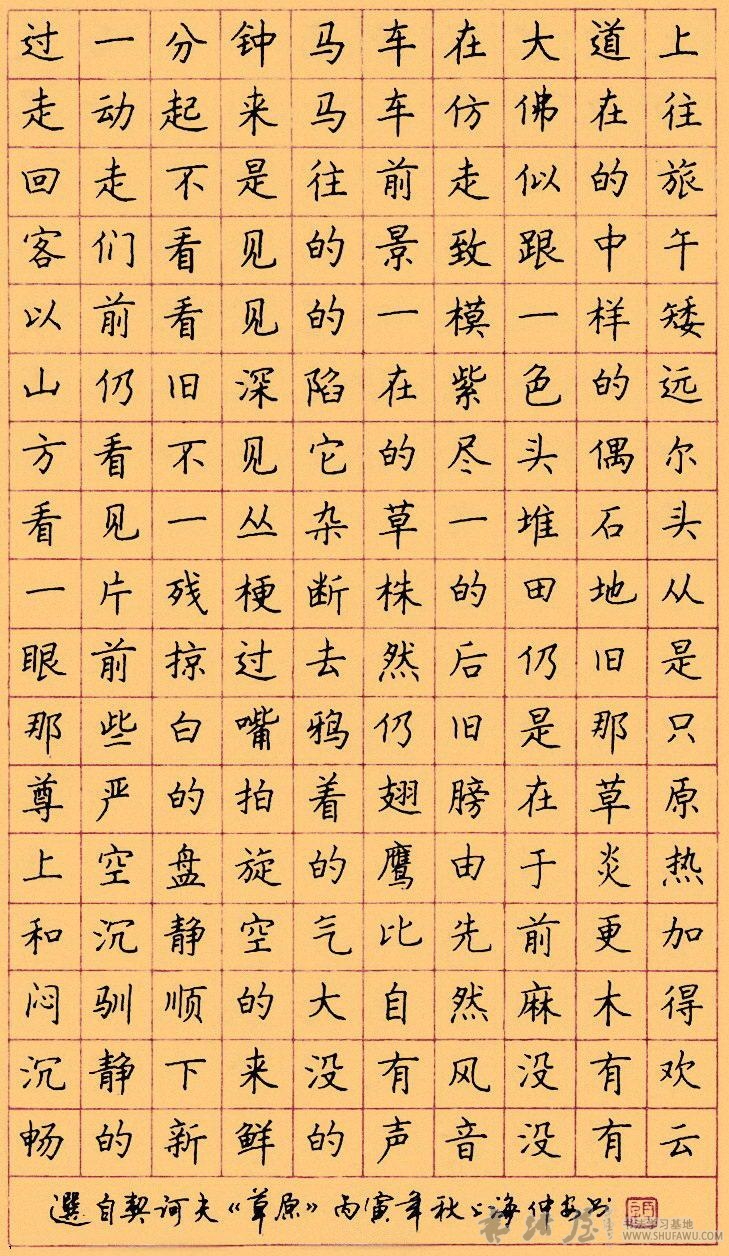 过一分钟马车在大道上
走动起来马车仿佛在往
回走不是往前走似的旅
客们看见的景致跟中午
以前看见的一模一样矮
山仍旧深陷在紫色的远
方看不见它的尽头偶尔
看见一丛杂草一堆石头
一片残梗断株的田地从
眼前掠过去然后仍旧是
那些白嘴鸦仍旧是那只
尊严的拍着翅膀在草原
上空盘旋的鹰由于炎热
和沉静空气比先前更加
闷驯顺的大自然麻木得
沉静下来没有风没有欢
畅的新鲜的声音没有云
選自契诃夫《草原》丙寅年秋上海仲安书
书法屋
书法学习基地
WWW.SHUFAWU.COM